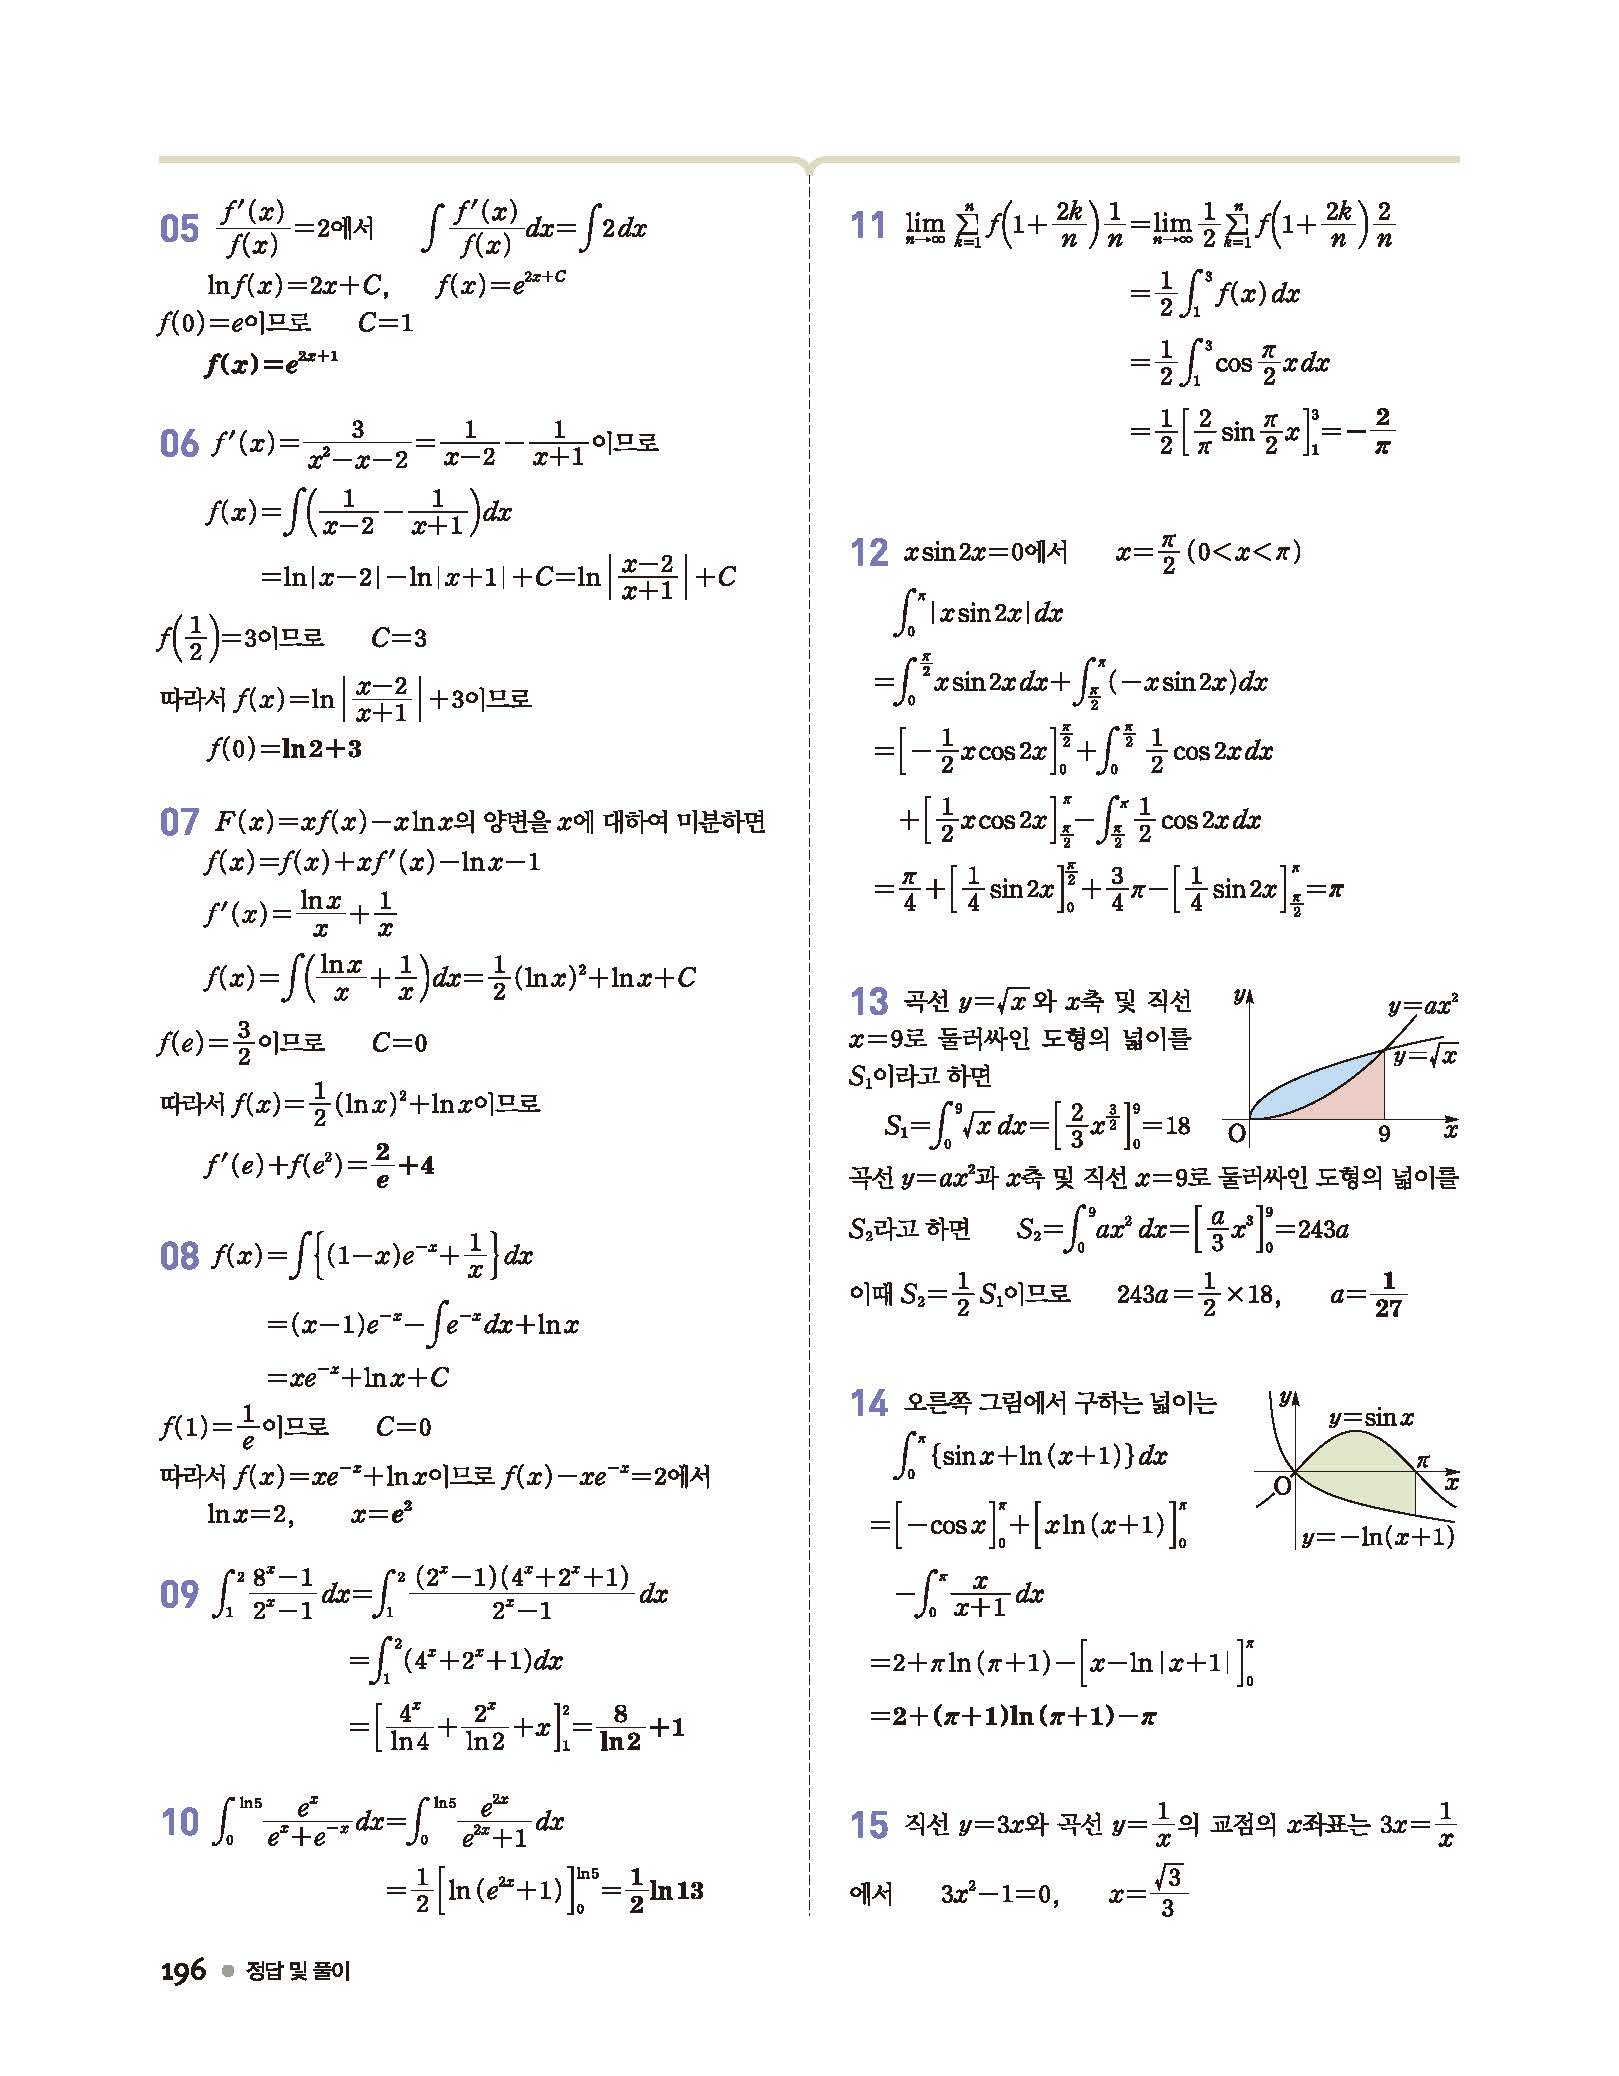 05 f′(x)/f(x)=2에서 ∫ f′(x)/f(x) dx=∫2dx
ln f(x)=2x+C, f(x)=e^{2x+C}
f(0)=e이므로 C=1
f(x)=e^{2x+1}
06 f′(x)=3/(x²−x−2)=1/(x−2)−1/(x+1)이므로
f(x)=∫(1/(x−2)−1/(x+1))dx
=ln|x−2|−ln|x+1|+C=ln|(x−2)/(x+1)|+C
f(1/2)=3이므로 C=3
따라서 f(x)=ln|(x−2)/(x+1)|+3이므로
f(0)=ln2+3
07 F(x)=xf(x)−xlnx의 양변을 x에 대하여 미분하면
f(x)=f(x)+xf′(x)−lnx−1
f′(x)=lnx/x+1/x
f(x)=∫(lnx/x+1/x)dx=1/2(lnx)²+lnx+C
f(e)=3/2이므로 C=0
따라서 f(x)=1/2(lnx)²+lnx이므로
f′(e)+f(e²)=2/e+4
08 f(x)=∫{(1−x)e^{−x}+1/x}dx
=(x−1)e^{−x}−∫e^{−x}dx+lnx
=xe^{−x}+lnx+C
f(1)=1/e이므로 C=0
따라서 f(x)=xe^{−x}+lnx이므로 f(x)−xe^{−x}=2에서
lnx=2, x=e²
09 ∫₁² (8^x−1)/(2^x−1) dx=∫₁² (2^x−1)(4^x+2^x+1)/(2^x−1) dx
=∫₁²(4^x+2^x+1)dx
=[4^x/ln4+2^x/ln2+x]₁²=8/ln2+1
10 ∫₀^{ln5} e^x/(e^x+e^{−x}) dx=∫₀^{ln5} e^{2x}/(e^{2x}+1) dx
=1/2[ln(e^{2x}+1)]₀^{ln5}=1/2 ln13
11 lim_{n→∞} Σ_{k=1}^{n} f(1+2k/n)1/n=lim_{n→∞} 1/2 Σ_{k=1}^{n} f(1+2k/n)2/n
=1/2∫₁³f(x)dx
=1/2∫₁³cos π/2 xdx
=1/2[2/π sin π/2 x]₁³=−2/π
12 xsin2x=0에서 x=π/2 (0<x<π)
∫₀^π|xsin2x|dx
=∫₀^{π/2}xsin2xdx+∫_{π/2}^π(−xsin2x)dx
=[−1/2 xcos2x]₀^{π/2}+∫₀^{π/2} 1/2 cos2xdx
+[1/2 xcos2x]_{π/2}^π−∫_{π/2}^π 1/2 cos2xdx
=π/4+[1/4 sin2x]₀^{π/2}+3/4 π−[1/4 sin2x]_{π/2}^π=π
13 곡선 y=√x 와 x축 및 직선
x=9로 둘러싸인 도형의 넓이를
S₁이라고 하면
S₁=∫₀⁹√x dx=[2/3 x^{3/2}]₀⁹=18
y
y=ax²
y=√x
O 9 x
곡선 y=ax²과 x축 및 직선 x=9로 둘러싸인 도형의 넓이를
S₂라고 하면 S₂=∫₀⁹ax² dx=[a/3 x³]₀⁹=243a
이때 S₂=1/2 S₁이므로 243a=1/2×18, a=1/27
14 오른쪽 그림에서 구하는 넓이는
∫₀^π{sinx+ln(x+1)}dx
=[−cosx]₀^π+[xln(x+1)]₀^π
−∫₀^π x/(x+1) dx
=2+πln(π+1)−[x−ln|x+1|]₀^π
=2+(π+1)ln(π+1)−π
y
y=sinx
π
O x
y=−ln(x+1)
15 직선 y=3x와 곡선 y=1/x의 교점의 x좌표는 3x=1/x
에서 3x²−1=0, x=√3/3
196 ● 정답 및 풀이